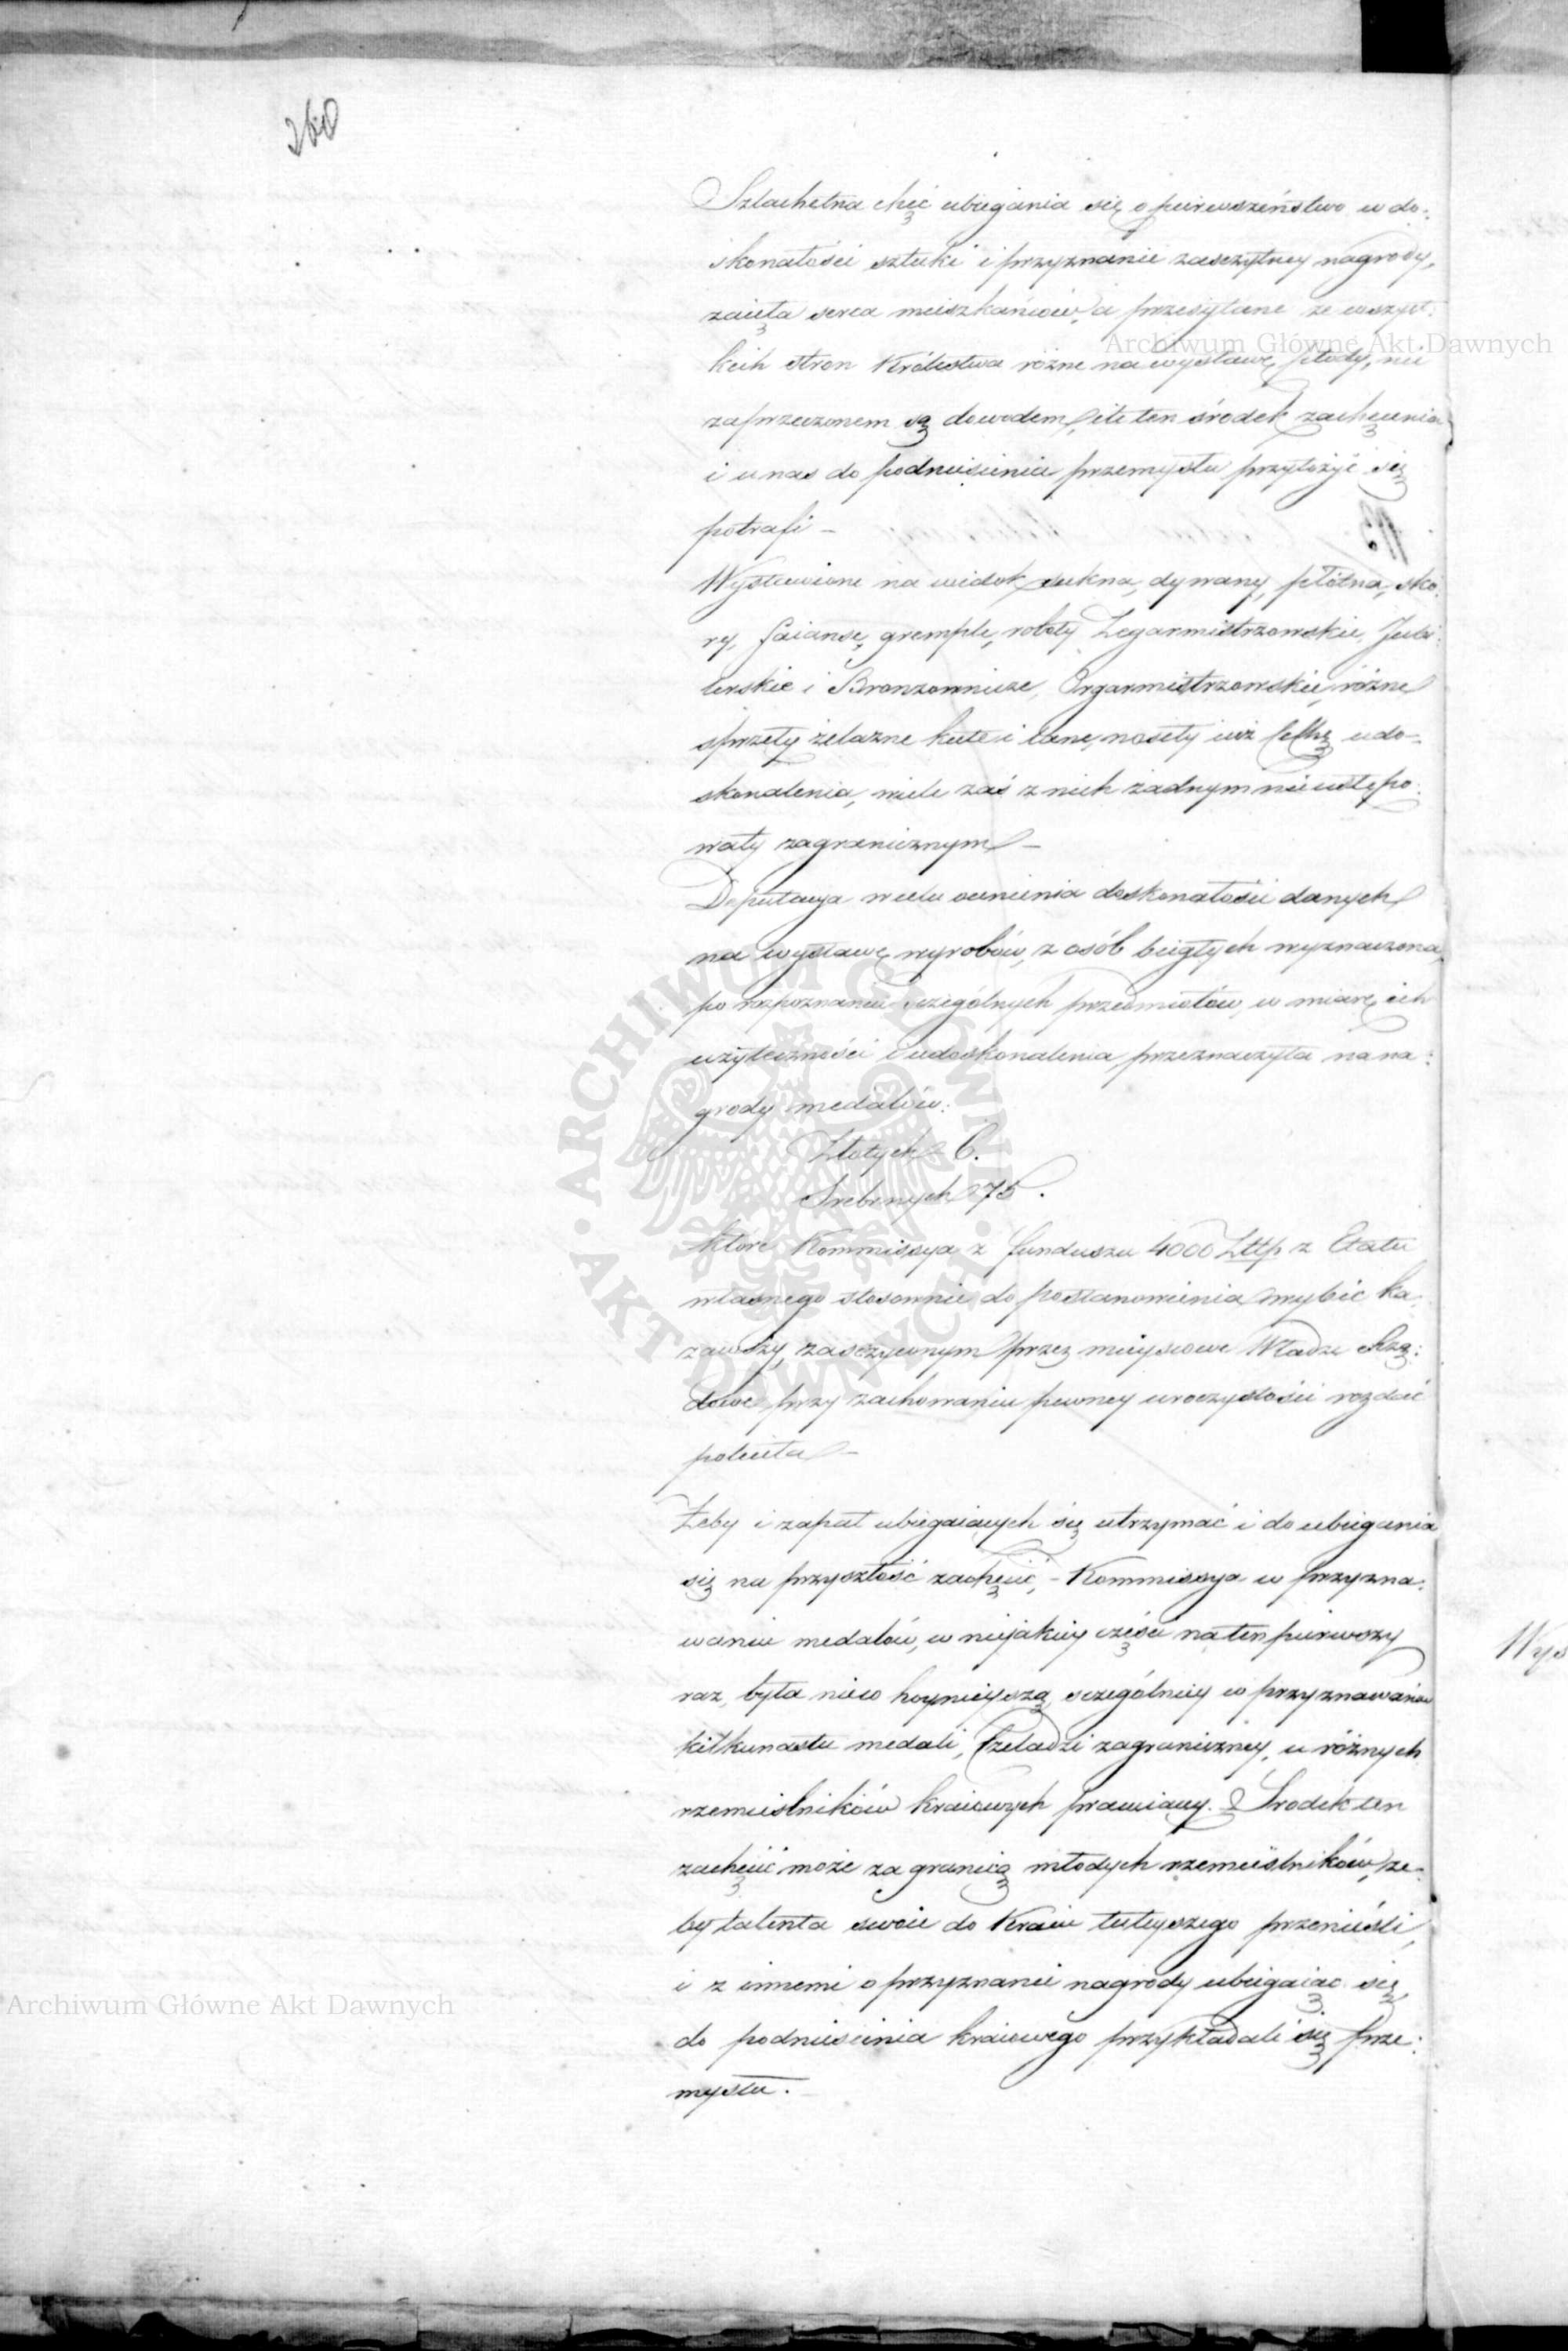 260
Szlachetna chęć ubiegania się o pierwszeństwo w do:
skonałości sztuki i przyznanie zaszczytney nagrody,
zaięła serca mieszkańców, a przesyłane ze wszyst:
kich stron Królestwa różne na wystawę płody, nie
zaprzeczonem są dowodem, ile ten środek zachęcenia
i u nas do podniesienia przemysłu przyłożyć się
potrafi –
Wystawione na widok sukna, dywany, płótna, skó:
ry, faianse, gremple, roboty Zegarmistrzowskie, Jubi:
lerskie i Bronzownicze, Orgarmistrzowskie, różne
sprzęty żelazne kute i lane, nosiły iuż cechę udo-
skonalenia, wiele zaś z nich żadnym nie ustępo:
wały zagranicznym –
Deputacya w celu ocenienia doskonałości danych
na wystawę wyrobów, z osób biegłych wyznaczona,
po rozpoznaniu szczególnych przedmiotów, w miarę ich
użyteczności i udoskonalenia przeznaczyła na na:
grody medalów:
Złotych 6.
Srebrnych 75.
które Kommissya z funduszu 4000 Złłp z Etatu
własnego stosownie do postanowienia wybić ka:
zawszy, zaszczyconym przez mieyscowe Władze Rzą:
dowe, przy zachowaniu pewney uroczystości rozdać
poleciła –
Żeby i zapał ubiegaiących się utrzymać i do ubiegania
się na przyszłość zachęcić, – Kommissya w przyzna:
waniu medalów, w nieiakiey części na ten pierwszy
raz, była nieco hoynieyszą, szczególniey w przyznawaniu
kilkunastu medali, Czeladzi zagraniczney, u różnych
rzemieślników kraiowych pracuiącey. Środek ten
zachęcić może za granicą młodych rzemieślników, że:
by talenta swoie do Kraiu tuteyszego przenieśli,
i z innemi o przyznanie nagrody ubiegaiąc się,
do podniesienia kraiowego przykładali się prze:
mysłu.
Wys
Archiwum Główne Akt Dawnych
Archiwum Główne Akt Dawnych
ARCHIWUM GŁÓWNE AKT DAWNYCH